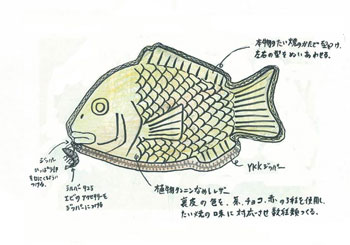 本物のたい焼のかたで型つけ
左右の型をぬいあわせる。
YKKジッパー
植物タンニンなめしレザー
裏皮の色を、茶、チョコ、赤の3種を使用し、
たい焼の味に対応させ数種類つくる。
ジッパー
つける。
シルバー925
エビのアクセサリーを
ジッパーにつける